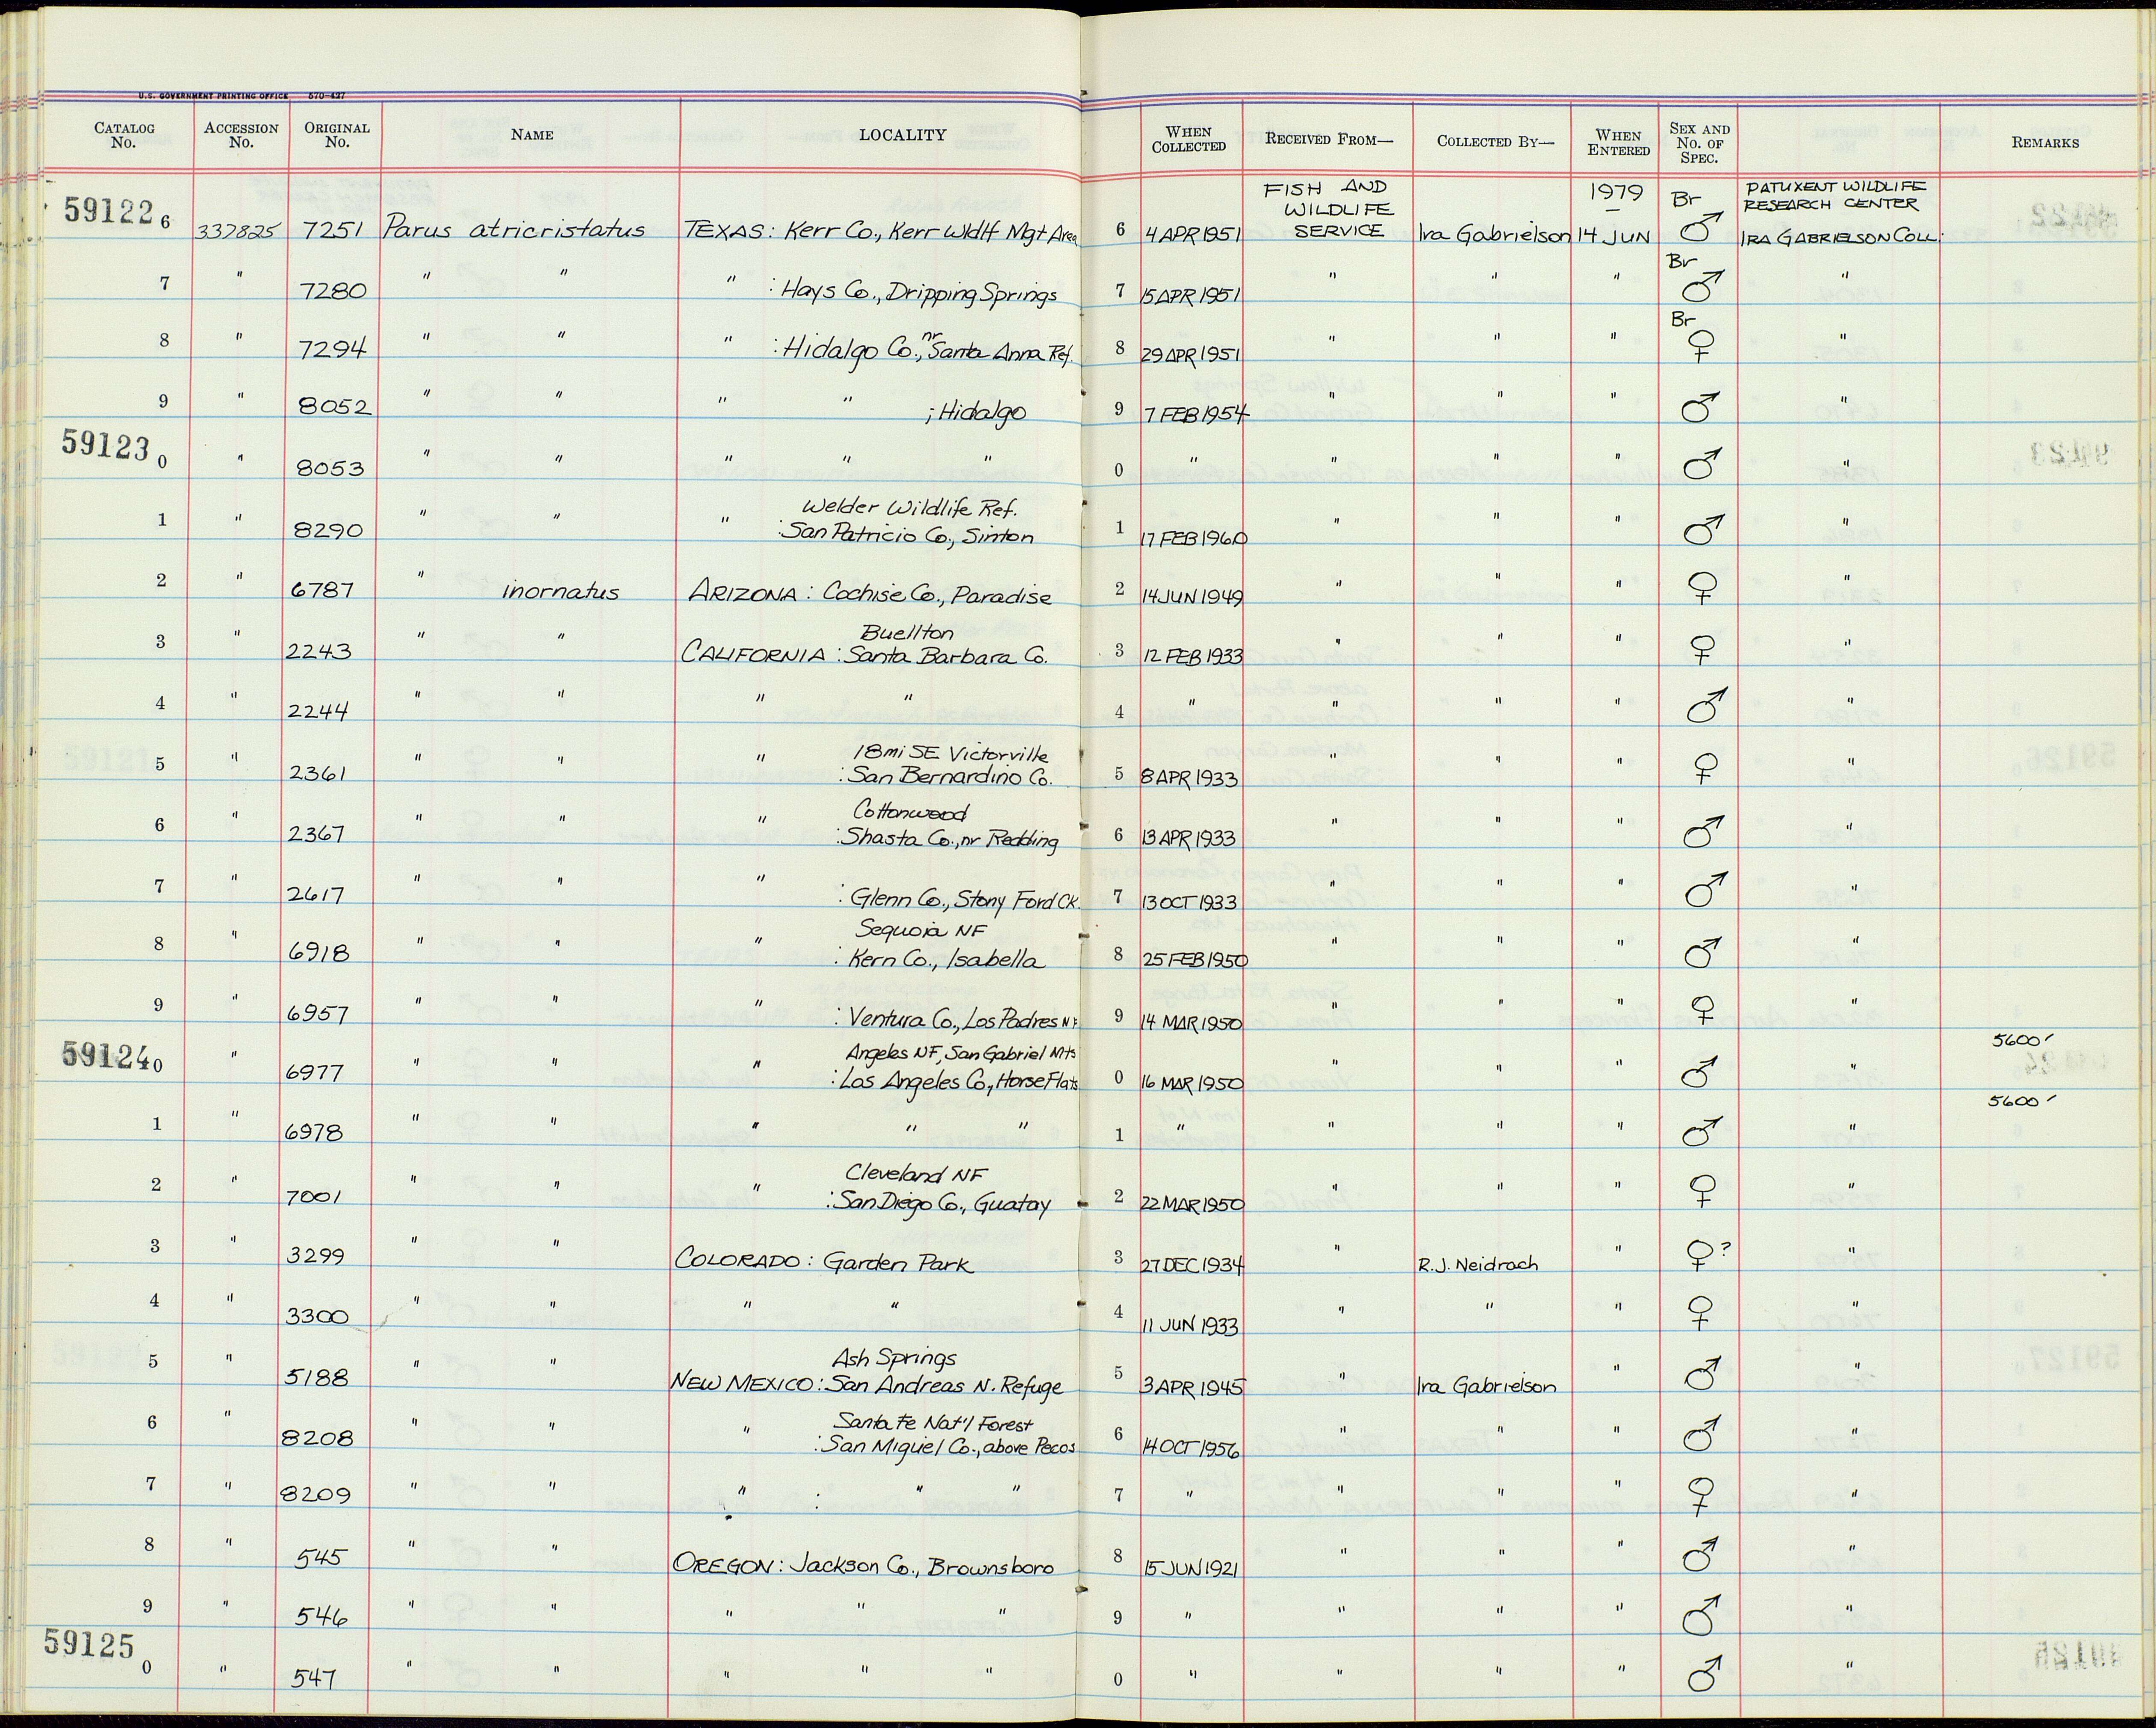 U.S. GOVERNMENT PRINTING OFFICE 570-437
CATALOG No. ACCESSION No. ORIGINAL No. NAME LOCALITY WHEN COLLECTED RECEIVED FROM— COLLECTED BY— WHEN ENTERED SEX AND No. OF SPEC. REMARKS
FISH AND WILDLIFE SERVICE 1979 Br PATUXENT WILDLIFE RESEARCH CENTER
59122 6 337825 7251 Parus atricristatus TEXAS: Kerr Co., Kerr Wldlf Mgt Area 6 4 APR 1951 Ira Gabrielson 14 JUN ♂ IRA GABRIELSON COLL.
7 " 7280 " " " : Hays Co., Dripping Springs 7 15 APR 1951 " " " Br ♂ "
8 " 7294 " " " : Hidalgo Co., nr Santa Anna Ref. 8 29 APR 1951 " " " Br ♀ "
9 " 8052 " " " " ; Hidalgo 9 7 FEB 1954 " " " ♂ "
59123 0 " 8053 " " " " " 0 " " " " ♂ "
Welder Wildlife Ref.
1 " 8290 " " " : San Patricio Co., Sinton 1 17 FEB 1960 " " " ♂ "
2 " 6787 " inornatus ARIZONA: Cochise Co., Paradise 2 14 JUN 1949 " " " ♀ "
Buellton
3 " 2243 " " CALIFORNIA: Santa Barbara Co. 3 12 FEB 1933 " " " ♀ "
4 " 2244 " " " " 4 " " " " ♂ "
18mi SE Victorville
5 " 2361 " " " : San Bernardino Co. 5 8 APR 1933 " " " ♀ "
Cottonwood
6 " 2367 " " " : Shasta Co., nr Redding 6 13 APR 1933 " " " ♂ "
7 " 2617 " " " : Glenn Co., Stony Ford Ck. 7 13 OCT 1933 " " " ♂ "
Sequoia NF
8 " 6918 " " " : Kern Co., Isabella 8 25 FEB 1950 " " " ♂ "
9 " 6957 " " " : Ventura Co., Los Padres NF 9 14 MAR 1950 " " " ♀ "
Angeles NF, San Gabriel Mts 5600'
59124 0 " 6977 " " " : Los Angeles Co., Horse Flats 0 16 MAR 1950 " " " ♂ "
5600'
1 " 6978 " " " " " 1 " " " " ♂ "
Cleveland NF
2 " 7001 " " " : San Diego Co., Guatay 2 22 MAR 1950 " " " ♀ "
3 " 3299 " " COLORADO: Garden Park 3 27 DEC 1934 " R.J. Neidrach " ♀? "
4 " 3300 " " " " 4 11 JUN 1933 " " " ♀ "
Ash Springs
5 " 5188 " " NEW MEXICO: San Andreas N. Refuge 5 3 APR 1945 " Ira Gabrielson " ♂ "
Santa Fe Nat'l Forest
6 " 8208 " " " : San Miguel Co., above Pecos 6 14 OCT 1956 " " " ♂ "
7 " 8209 " " " : " " 7 " " " " ♀ "
8 " 545 " " OREGON: Jackson Co., Brownsboro 8 15 JUN 1921 " " " ♂ "
9 " 546 " " " " " 9 " " " " ♂ "
59125 0 " 547 " " " " " 0 " " " " ♂ "